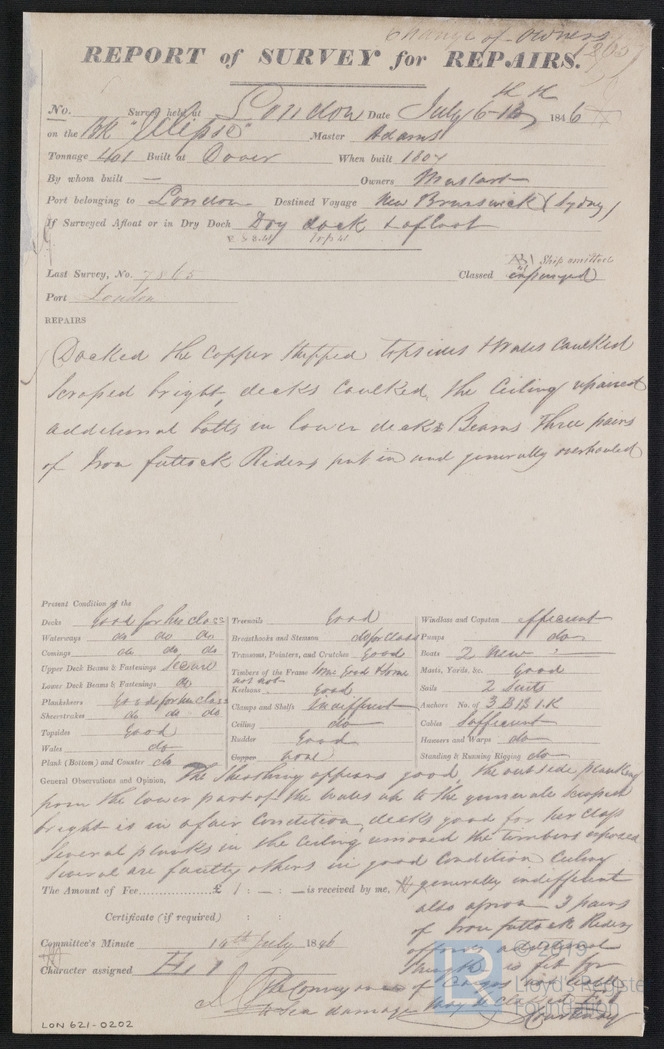 Change of Owners
1805
REPORT of SURVEY for REPAIRS.
No. Survey held at London Date July 6-13th 1846
on the Bk "Ellipse" Master Adams
Tonnage 401 Built at Dover When built 1807
By whom built — Owners Mustart
Port belonging to London Destined Voyage New Brunswick (Sydney)
If Surveyed Afloat or in Dry Dock Dry dock & afloat
Last Survey, No. 7865 Classed Æ1 Ship omitted expunged
Port London
REPAIRS
Docked the Copper stripped topsides & wales caulked
Scraped bright, decks caulked, the Ceiling repaired
additional bolts in lower deck Beams three pairs
of Iron futtock Riders put in and generally overhauled
Present Condition of the
Decks Good for her class
Waterways do do do
Comings do do do
Upper Deck Beams & Fastenings Secure
Lower Deck Beams & Fastenings do
Planksheers Good for her class
Sheerstrakes do do do
Topsides Good
Wales do
Plank (Bottom) and Counter do
Treenails Good
Breasthooks and Stemson do for class
Transoms, Pointers, and Crutches Good
Timbers of the Frame some Good & some not
Keelsons Good
Clamps and Shelfs Indifferent
Ceiling do
Rudder Good
Copper None
Windlass and Capstan efficient
Pumps do
Boats 2 New
Masts, Yards, &c. Good
Sails 2 Suits
Anchors No. of 3 B 1 S 1 K
Cables Sufficient
Hawsers and Warps do
Standing & Running Rigging do
General Observations and Opinion, The Sheathing appears good, the outside planking
from the lower part of the wales up to the gunwale scraped
bright is in a fair Condition, decks good for her class
Several planks in the Ceiling removed the timbers exposed
Several are faulty others in good Condition Ceiling
The Amount of Fee £ 1 : — : — is received by me, generally indifferent
also apron 3 pairs
Certificate (if required) : : of Iron futtock Riders
Committee's Minute 14th July 1846 additional
Character assigned Æ 1 strength is fit for
the Conveyance of Cargos not liable
to Sea damage
Courtenay
LON 621-0202
© 2019
Lloyd's Register
Foundation